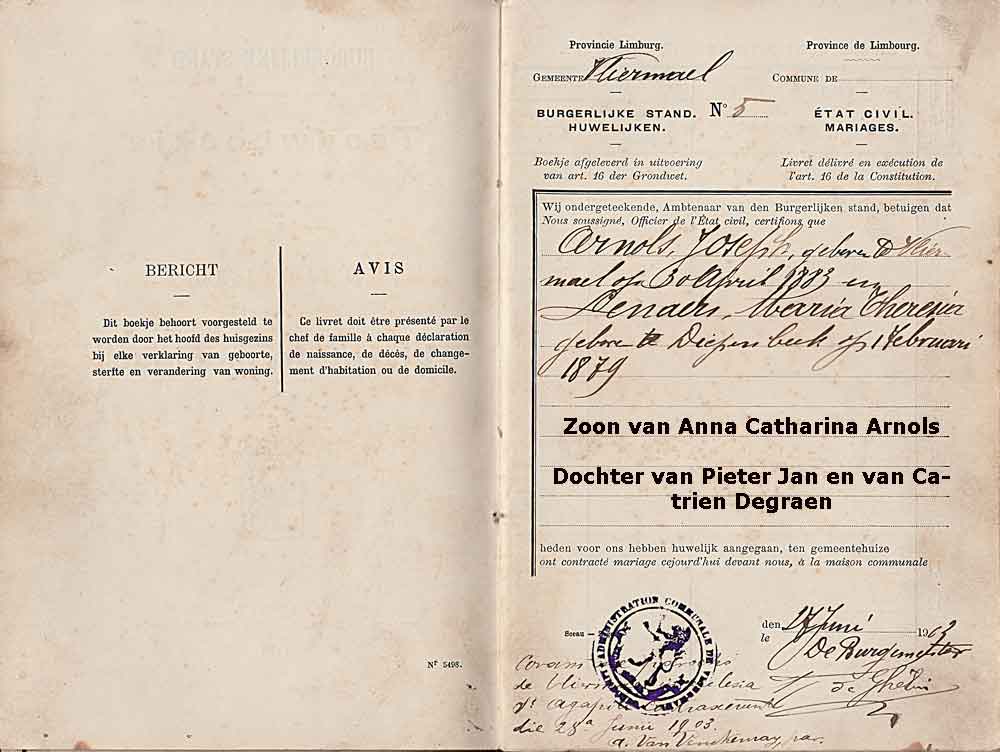 BERICHT
Dit boekje behoort voorgesteld te
worden door het hoofd des huisgezins
bij elke verklaring van geboorte,
sterfte en verandering van woning.
AVIS
Ce livret doit être présenté par le
chef de famille à chaque déclaration
de naissance, de décès, de change-
ment d'habitation ou de domicile.
Nr 5498.
Provincie Limburg.
Province de Limbourg.
GEMEENTE Vliermael
COMMUNE DE
BURGERLIJKE STAND.
HUWELIJKEN.
N° 5
ÉTAT CIVIL.
MARIAGES.
Boekje afgeleverd in uitvoering
van art. 16 der Grondwet.
Livret délivré en exécution de
l'art. 16 de la Constitution.
Wij ondergeteekende, Ambtenaar van den Burgerlijken stand, betuigen dat
Nous soussigné, Officier de l'État civil, certifions que
Arnols, Joseph, geboren te Vlier-
mael op 30 April 1883 en
Lenaers, Maria Theresia
geboren te Diepenbeek op 1 februari
1879
Zoon van Anna Catharina Arnols
Dochter van Pieter Jan en van Ca-
trien Degraen
heden voor ons hebben huwelijk aangegaan, ten gemeentehuize
ont contracté mariage cejourd'hui devant nous, à la maison communale
Sceau
ADMINISTRATION COMMUNALE DE
den 27 Juni 1903
le
De Burgemeester
Coram
de
St Agapiti
die 28a Junii 1903.